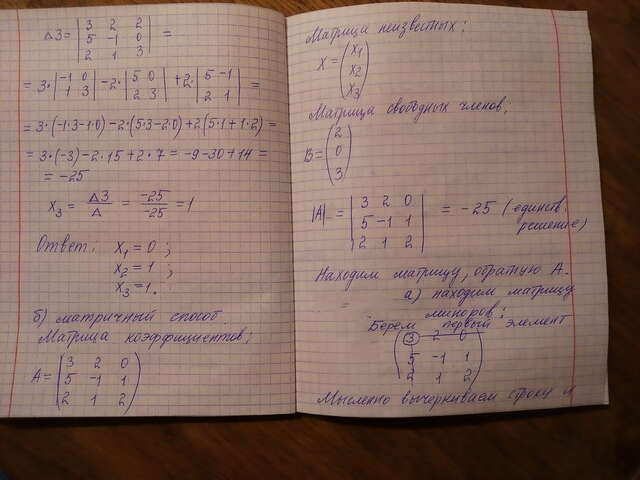 Δ3 = |3 2 2| =
|5 -1 0|
|2 1 3|
= 3·|-1 0| -2·|5 0| +2·|5 -1| =
|1 3| |2 3| |2 1|
= 3·(-1·3-1·0)-2·(5·3-2·0)+2(5·1+1·2) =
= 3·(-3)-2·15+2·7 = -9-30+14 =
= -25
X3 = Δ3/Δ = -25/-25 = 1
Ответ: X1 = 0;
X2 = 1;
X3 = 1.
б) матричный способ
Матрица коэффициентов:
A = (3 2 0)
(5 -1 1)
(2 1 2)
Матрица неизвестных:
X = (X1)
(X2)
(X3)
Матрица свободных членов:
B = (2)
(0)
(3)
|A| = |3 2 0| = -25 (единств.
|5 -1 1| решение)
|2 1 2|
Находим матрицу, обратную A.
= а) находим матрицу
миноров:
Берем первый элемент
(3 2 0)
(5 -1 1)
(2 1 2)
Мысленно вычеркиваем строку и